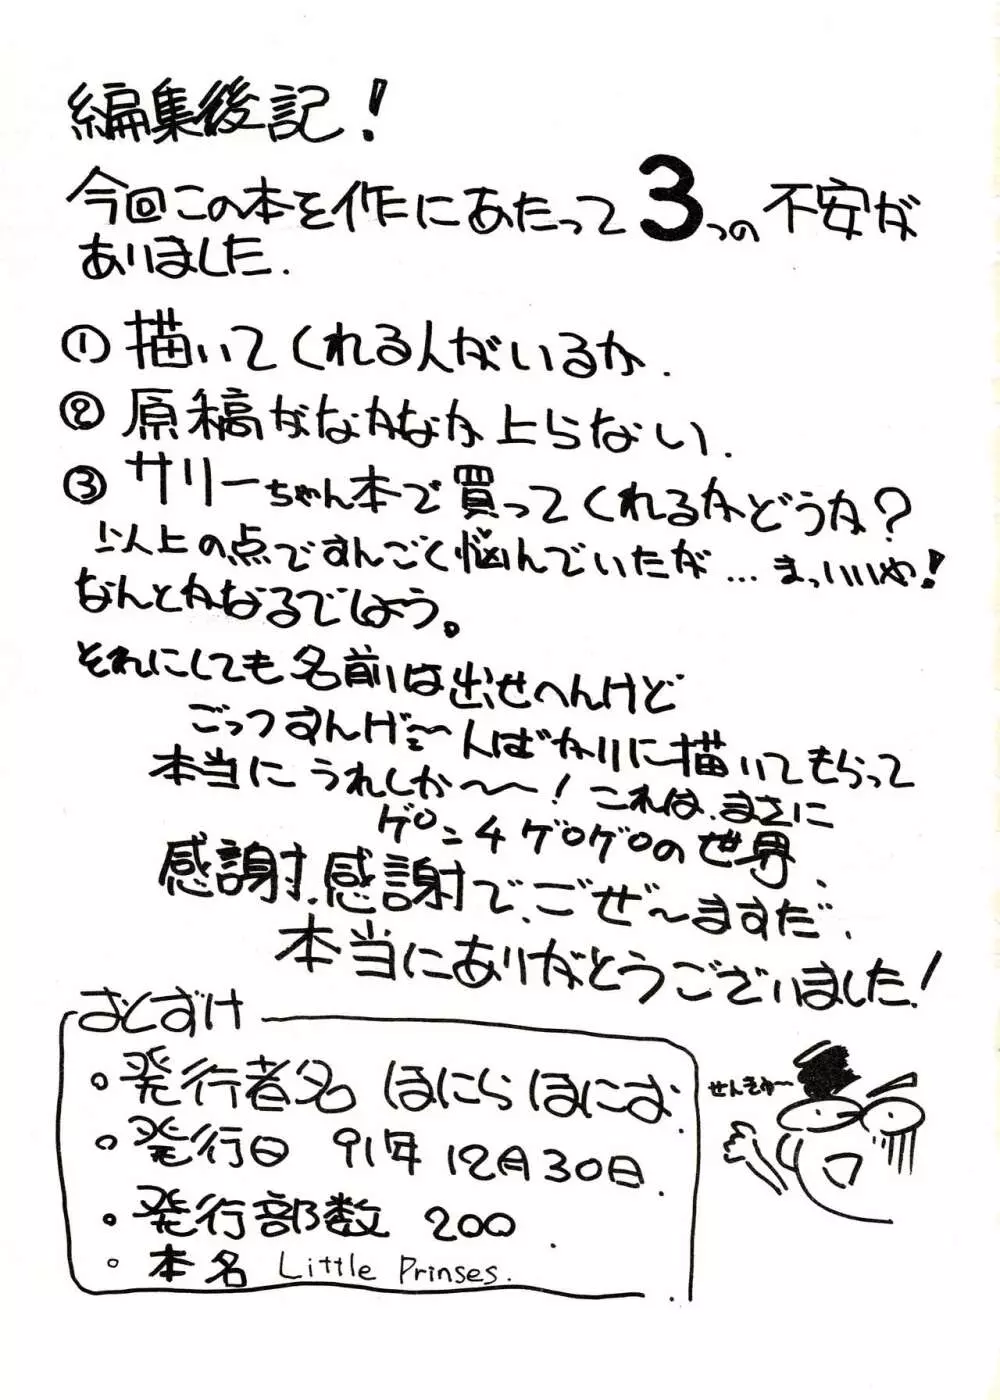 編集後記!
今回この本を作にあたって3つの不安が
ありました.
① 描いてくれる人がいるか.
② 原稿がなかなか上らない.
③ サリーちゃん本で買ってくれるかどうか?
以上の点ですんごく悩んでいたが...まっいいや!
なんとかなるでしょう。
それにしても名前は出せへんけど
ごっつすんげ〜人ばかりに描いてもらって
本当にうれしか〜〜!これは.まさに
ゲロニ4ゲロゲロの世界.
感謝.感謝で.ござ〜ますだ.
本当にありがとうございました!
おくずけ
・発行者名 ほにらほにお
・発行日 91年12月30日.
・発行部数 200.
・本名 Little Prinses.
せんきゅ〜